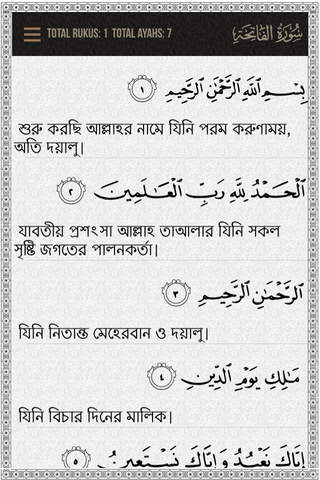 TOTAL RUKUS: 1 TOTAL AYAHS: 7 سُورَةُ الفَاتِحَةِ
بِسْمِ ٱللَّهِ ٱلرَّحْمَٰنِ ٱلرَّحِيمِ ١
শুরু করছি আল্লাহর নামে যিনি পরম করুণাময়,
অতি দয়ালু।
ٱلْحَمْدُ لِلَّهِ رَبِّ ٱلْعَٰلَمِينَ ٢
যাবতীয় প্রশংসা আল্লাহ তাআলার যিনি সকল
সৃষ্টি জগতের পালনকর্তা।
ٱلرَّحْمَٰنِ ٱلرَّحِيمِ ٣
যিনি নিতান্ত মেহেরবান ও দয়ালু।
مَٰلِكِ يَوْمِ ٱلدِّينِ ٤
যিনি বিচার দিনের মালিক।
إِيَّاكَ نَعْبُدُ وَإِيَّاكَ نَسْتَعِينُ ٥